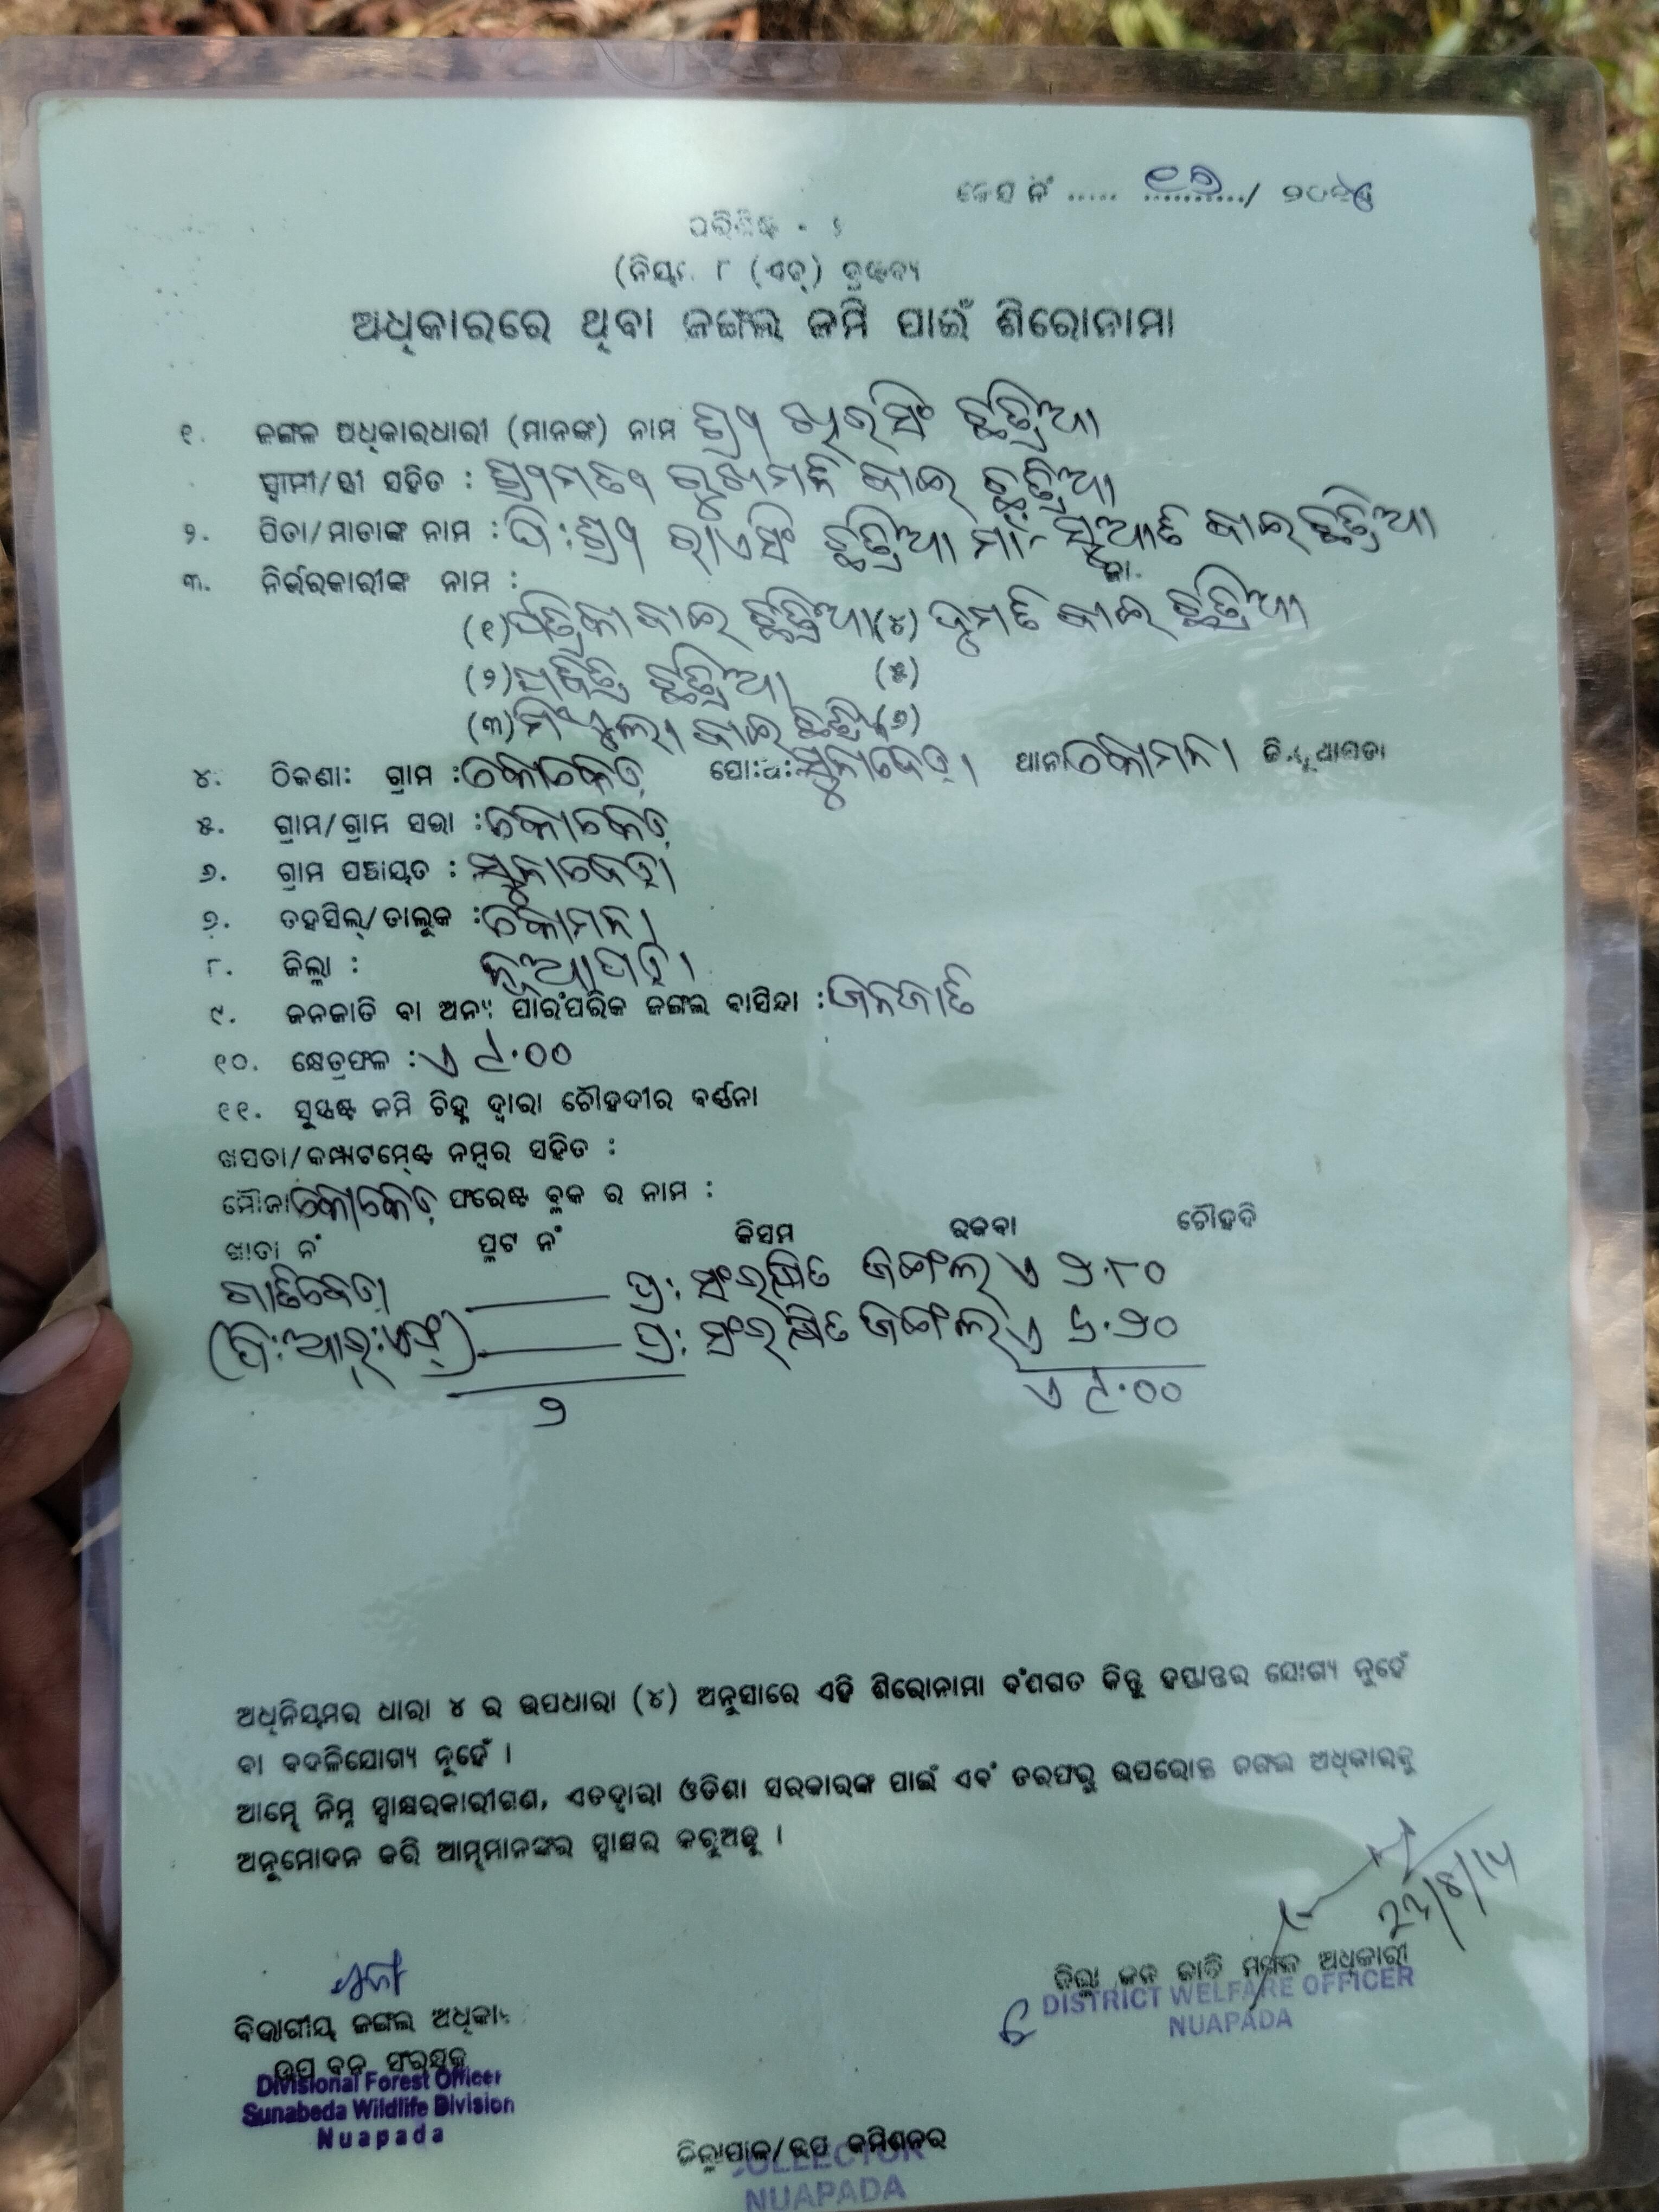 କେସ ନଂ ..... ........../ ୨୦
ପରିଶିଷ୍ଟ -
(ନିୟମ ୮ (ଏଚ୍) ଦ୍ରଷ୍ଟବ୍ୟ
ଅଧିକାରରେ ଥିବା ଜଙ୍ଗଲ ଜମି ପାଇଁ ଶିରୋନାମା
୧. ଜଙ୍ଗଲ ଅଧିକାରଧାରୀ (ମାନଙ୍କ) ନାମ ଶ୍ରୀ ଖିରସିଂ ଛତ୍ରିଆ
ସ୍ୱାମୀ/ସ୍ତ୍ରୀ ସହିତ : ଶ୍ରୀମତୀ ରୁଖମନି ବାଇ ଛତ୍ରିଆ
୨. ପିତା/ମାତାଙ୍କ ନାମ : ପି:ଶ୍ରୀ ରାଏସିଂ ଛତ୍ରିଆ ମା:- ଛତ୍ରିଆ
୩. ନିର୍ଭରକାରୀଙ୍କ ନାମ :
(୧) ବାଇ ଛତ୍ରିଆ (୪) ବାଇ ଛତ୍ରିଆ
(୨) ଛତ୍ରିଆ (୫)
(୩) ବାଇ (୬)
୪. ଠିକଣା: ଗ୍ରାମ : ପୋ:ଅ: ସୁନାବେଡ଼ା ଥାନା କୋମନା
୫. ଗ୍ରାମ/ଗ୍ରାମ ସଭା :
୬. ଗ୍ରାମ ପଞ୍ଚାୟତ : ସୁନାବେଡ଼ା
୭. ତହସିଲ୍/ତାଲୁକ : କୋମନା
୮. ଜିଲ୍ଲା : ନୂଆପଡ଼ା
୯. ଜନଜାତି ବା ଅନ୍ୟ ପାରଂପରିକ ଜଙ୍ଗଲ ବାସିନ୍ଦା : ଜନଜାତି
୧୦. କ୍ଷେତ୍ରଫଳ : ଏ ୯.୦୦
୧୧. ସୁସ୍ପଷ୍ଟ ଜମି ଚିହ୍ନ ଦ୍ୱାରା ଚୌହଦୀର ବର୍ଣ୍ଣନା
ଖସଡା/କମ୍ପାଟମେଣ୍ଟ ନମ୍ବର ସହିତ :
ମୌଜା ଫରେଷ୍ଟ ବ୍ଲକ ର ନାମ :
ଖାତା ନଂ ପ୍ଲଟ ନଂ କିସମ ରକବା ଚୌହଦି
ପ୍ର: ସଂରକ୍ଷିତ ଜଙ୍ଗଲ ଏ ୨.୮୦
(ପି:ଆର୍:ଏଫ୍) ପ୍ର: ସଂରକ୍ଷିତ ଜଙ୍ଗଲ ଏ ୬.୨୦
୨ ଏ ୯.୦୦
ଅଧିନିୟମର ଧାରା ୪ ର ଉପଧାରା (୪) ଅନୁସାରେ ଏହି ଶିରୋନାମା ବଂଶଗତ କିନ୍ତୁ ହସ୍ତାନ୍ତର ଯୋଗ୍ୟ ନୁହେଁ
ବା ବଦଳିଯୋଗ୍ୟ ନୁହେଁ ।
ଆମ୍ଭେ ନିମ୍ନ ସ୍ୱାକ୍ଷରକାରୀଗଣ, ଏତଦ୍ୱାରା ଓଡିଶା ସରକାରଙ୍କ ପାଇଁ ଏବଂ ତରଫରୁ ଉପରୋକ୍ତ ଜଙ୍ଗଲ ଅଧିକାରକୁ
ଅନୁମୋଦନ କରି ଆମ୍ଭମାନଙ୍କର ସ୍ୱାକ୍ଷର କରୁଅଛୁ ।
ଜିଲ୍ଲା ଜନ ଜାତି ମଙ୍ଗଳ ଅଧିକାରୀ
DISTRICT WELFARE OFFICER
NUAPADA
ବିଭାଗୀୟ ଜଙ୍ଗଲ ଅଧିକାରୀ
ଉପ ବନ ସଂରକ୍ଷକ
Divisional Forest Officer
Sunabeda Wildlife Division
Nuapada
ଜିଲ୍ଲାପାଳ/ଉପ କମିଶନର
COLLECTOR
NUAPADA